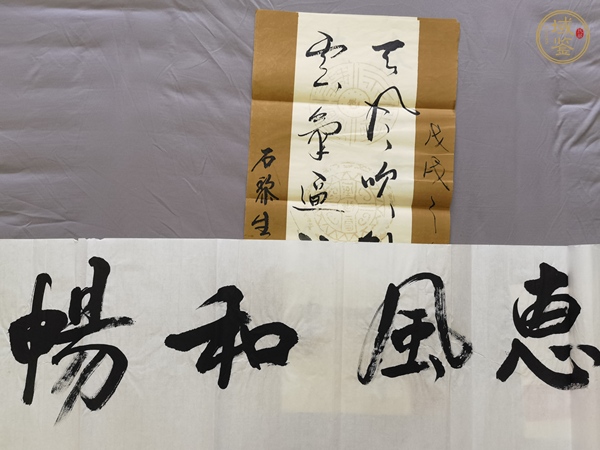 戊戌
天風吹
雲氣逼
石黎生
恵風和暢